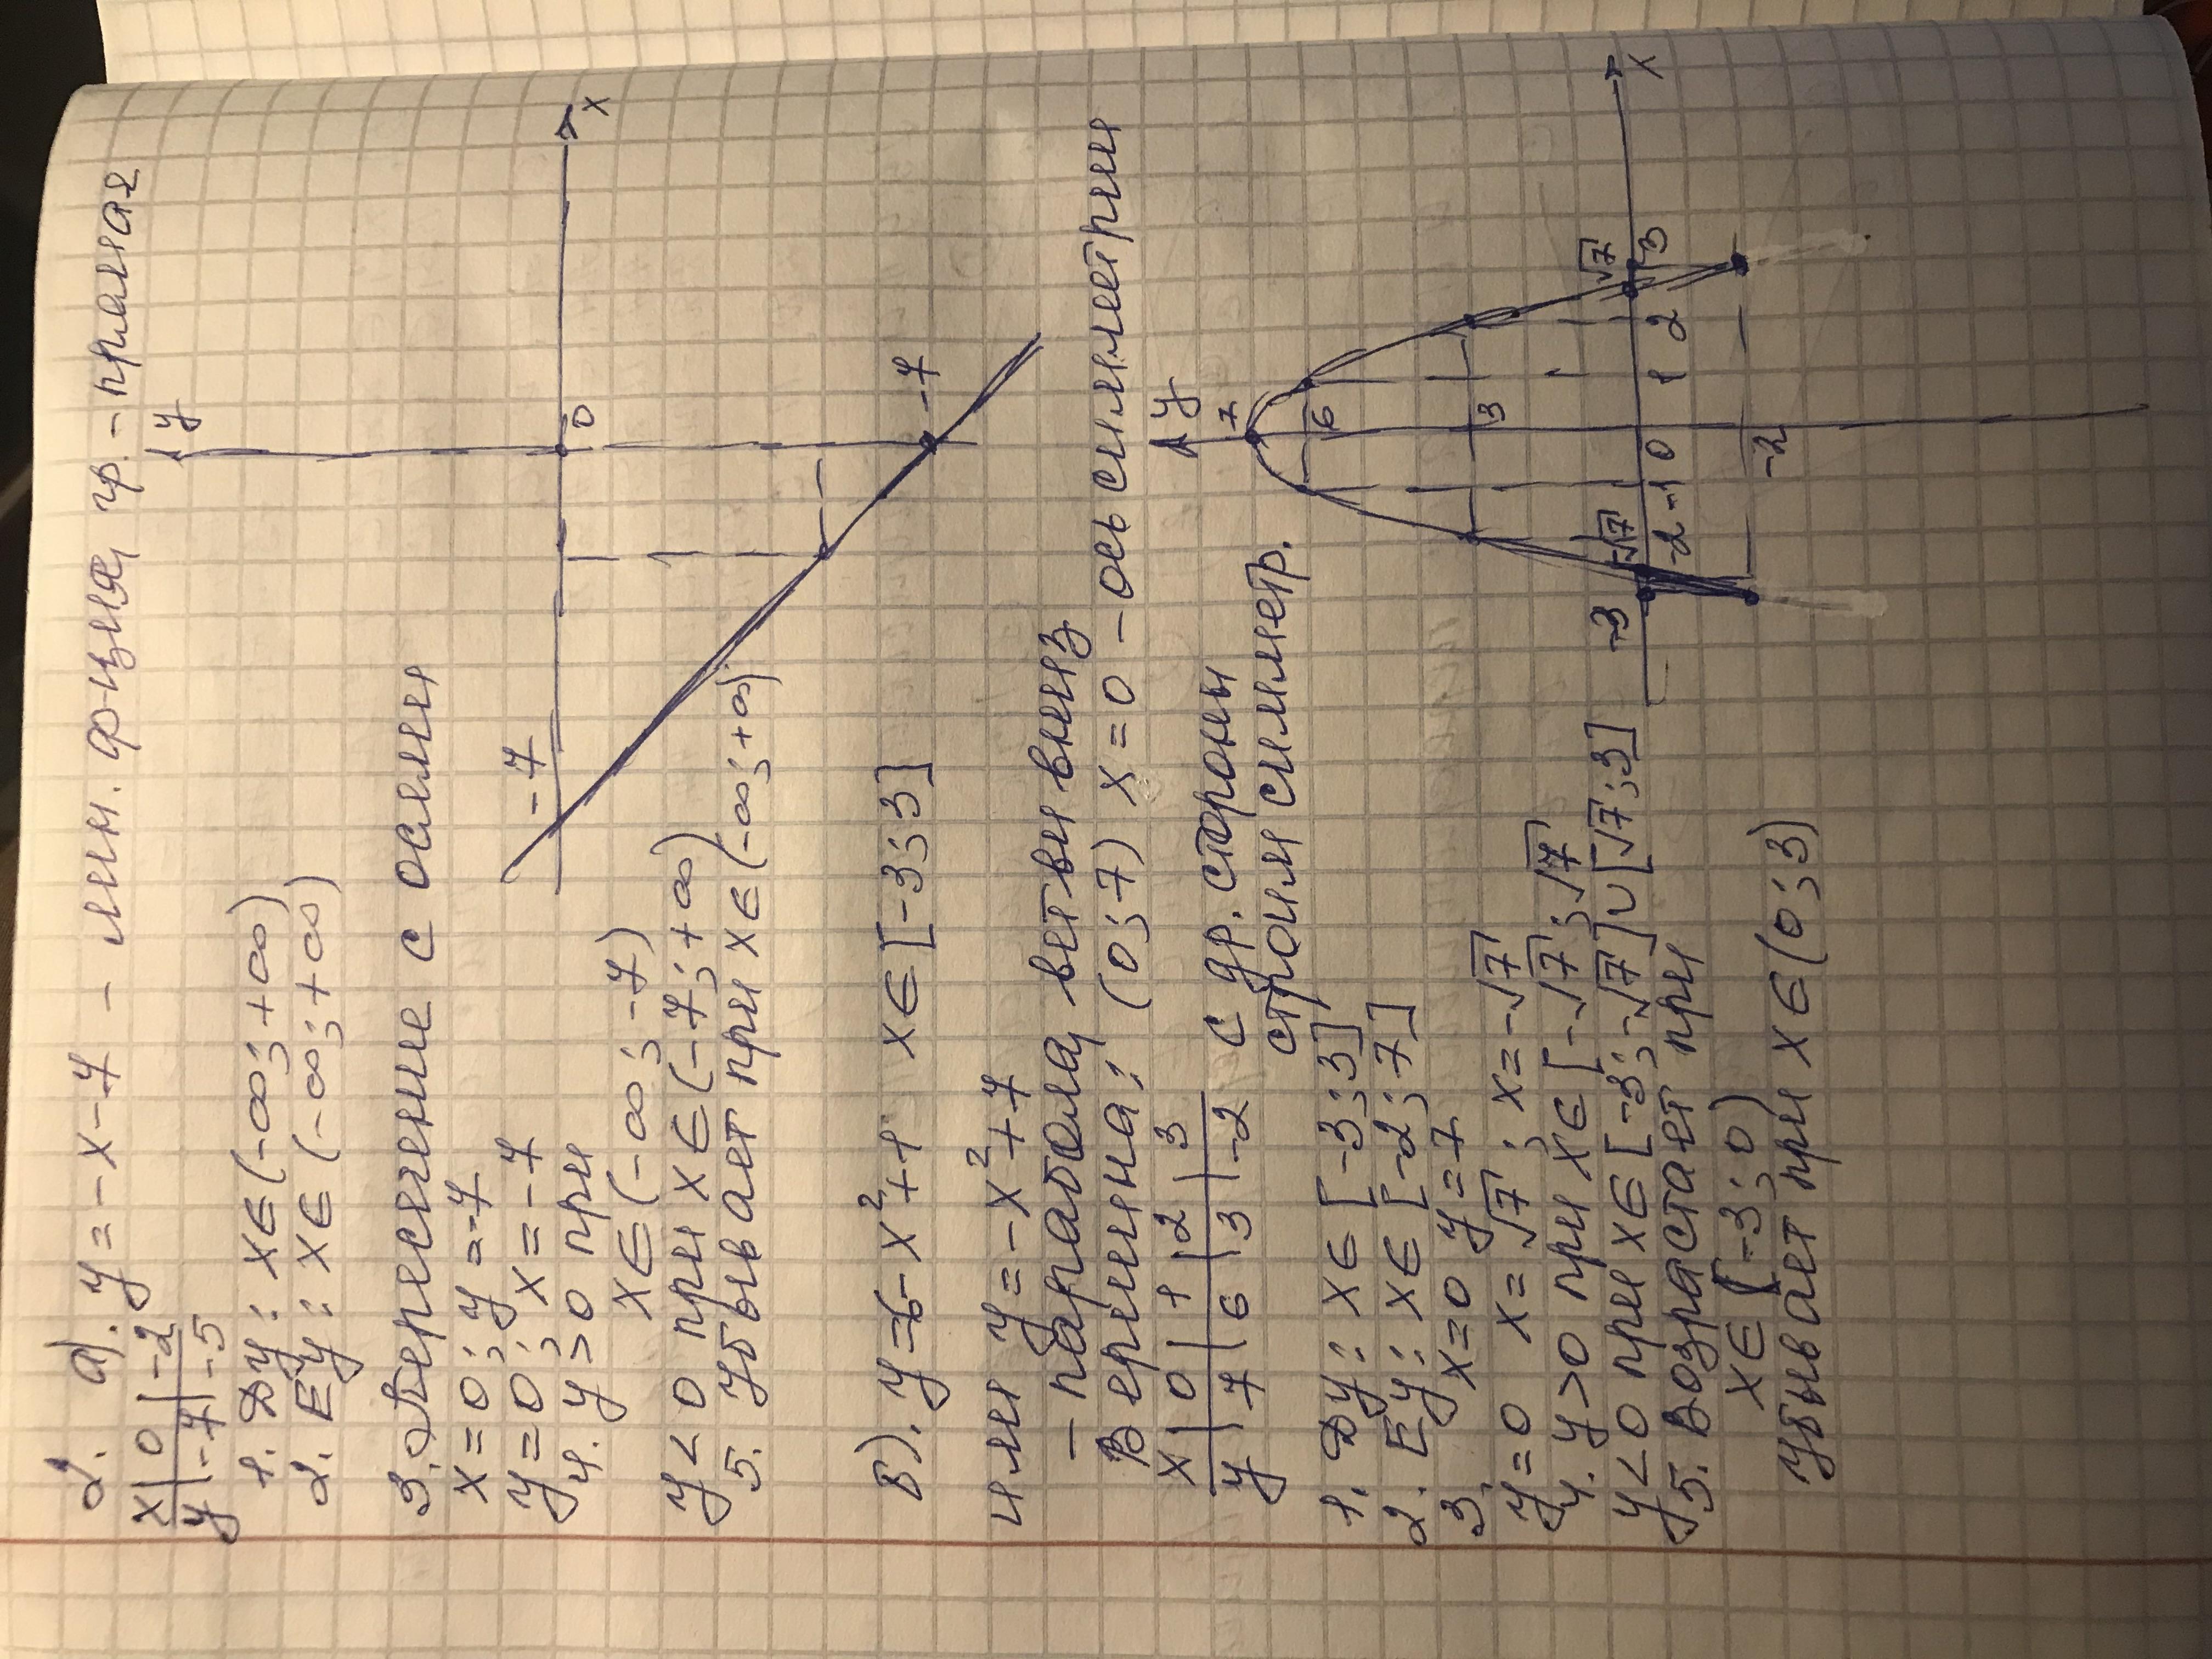 2. а). y = -x-7 – лин. ф-ция, гр. – прямая
x | 0 | -2
y | -7 | -5
1. Dy: x∈(-∞; +∞)
2. Ey: x∈(-∞; +∞)
3. Пересечение с осями
x=0; y=-7
y=0; x=-7
4. y>0 при
x∈(-∞; -7)
y<0 при x∈(-7; +∞)
5. убывает при x∈(-∞; +∞)
y
x
0
-7
-7
в). y=6-x²+1 x∈[-3;3]
или y=-x²+7
– парабола, ветви вниз
Вершина: (0;7) x=0 – ось симметрии
x | 0 | 1 | 2 | 3
y | 7 | 6 | 3 | -2
с др. стороны
строим симметр.
1. Dy: x∈[-3;3]
2. Ey: x∈[-2;7]
3. x=0 y=7
y=0 x=√7; x=-√7
4. y>0 при x∈[-√7;√7
y<0 при x∈[-3;-√7]∪[√7;3]
5. Возрастает при
x∈[-3;0)
убывает при x∈(0;3)
y
7
6
3
√7
-√7
-3 -2 -1 0 1 2 3
x
-2